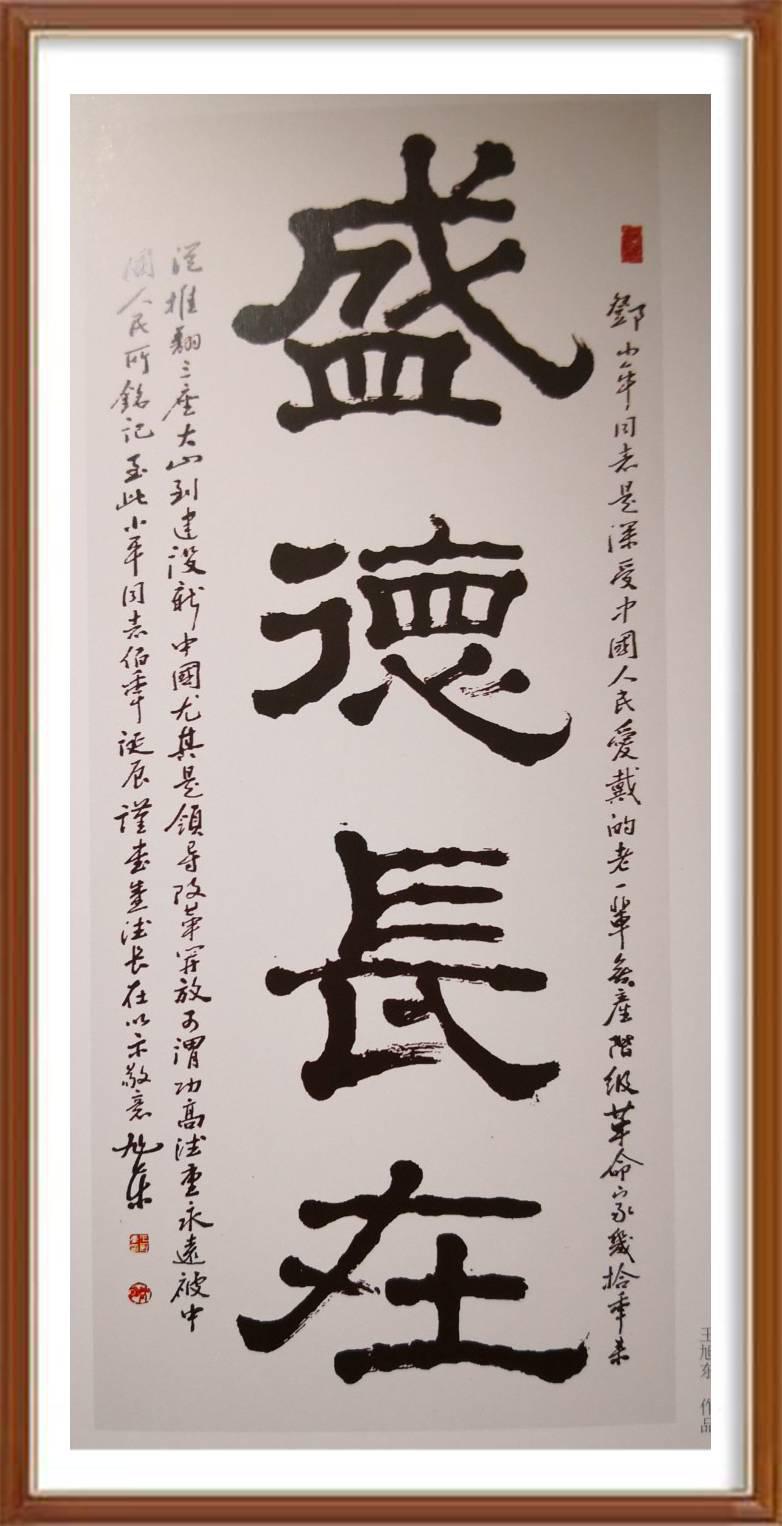 盛德長在
鄧小平同志是深受中國人民愛戴的老一輩無產階級革命家幾拾年来
從推翻三座大山到建設新中國尤其是領导改革開放可謂功高德重永遠被中
國人民所銘記至此小平同志佰年誕辰謹書盛德長在以示敬意 旭東
王旭东 作品